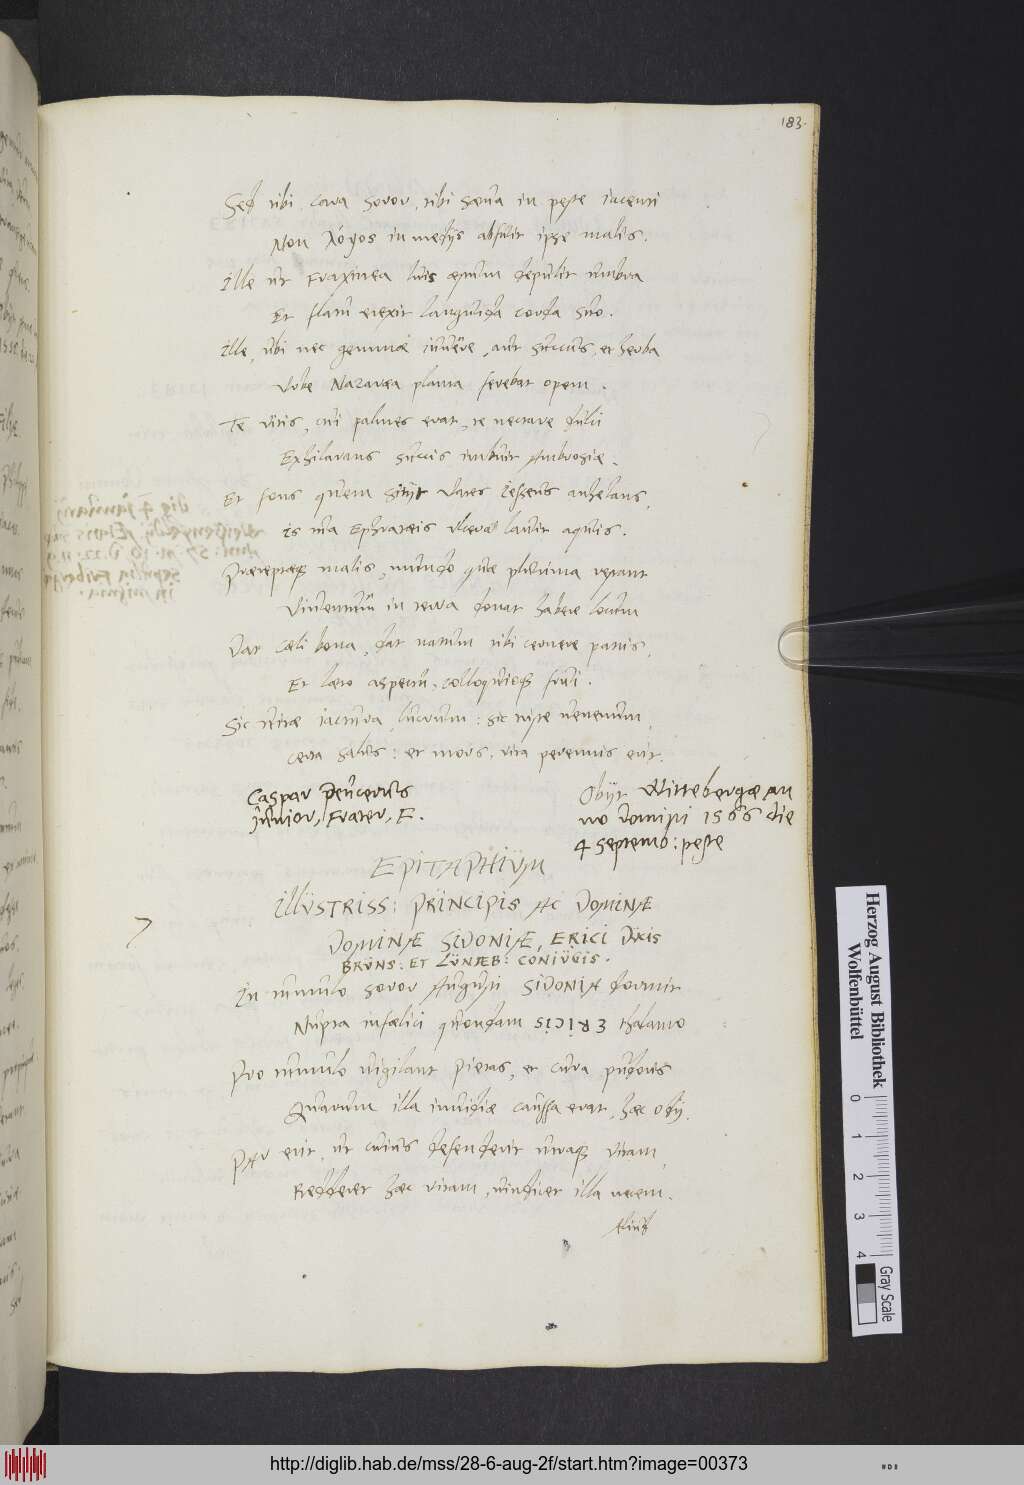 183.
Sed tibi, cara soror, tibi saeva in peste iacenti
Non λόγος in medijs abfuit ipse malis.
Ille ut Fraxinea luis aestum depulit umbra
Et flatu erexit languida corda suo.
Ille, ubi nec gemmae iuvere, aut succus, et herba
Nazaraea planta ferebat opem.
Te vitis, cui palmes erat, te nectare dulci
Exhilarans succis imbuit Ambrosiae.
Et fons quem sitijt Vates Iesseus anhelans,
Is tua Ephrataeis ulcera lavit aquis.
malis, mundo quae plurima versant
Viventum in terra donat habere locum
Dat caeli bona, dat natum tibi cernere patris,
Et laeto aspectu, colloquioque frui.
Sic vitae iactura, lucrum: sic triste venenum,
certa salus: et mors, vita perennis erit.
Caspar Peucerus
Iunior, Frater, F.
Obijt Wittebergae an
no Domini 1566 die
4 Septemb: peste
EPITAPHIUM
ILLUSTRISS: PRINCIPIS AC DOMINAE
DOMINAE SIDONIAE, ERICI DUCIS
BRUNS: ET LUNAEB: CONIUGIS.
In tumulo soror Augusti SIDONIA dormit
Nupta infaelici quondam ERICIS thalamo
Pro tumulo vigilant Pietas, et cura pudoris
Quarum illa invidiae caussa erat, haec odij.
Par erit, ut cuius defendit utraque vitam,
Redderet haec vitam, vindicet illa necem.
Eiusd
Herzog August Bibliothek
Wolfenbüttel
0 1 2 3 4
Gray Scale
http://diglib.hab.de/mss/28-6-aug-2f/start.htm?image=00373